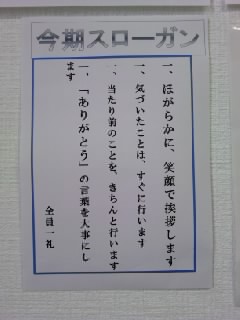 今期スローガン
一、ほがらかに、笑顔で挨拶します
一、気づいたことは、すぐに行います
一、当たり前のことを、きちんと行います
一、「ありがとう」の言葉を大事にし
ます
全員一礼